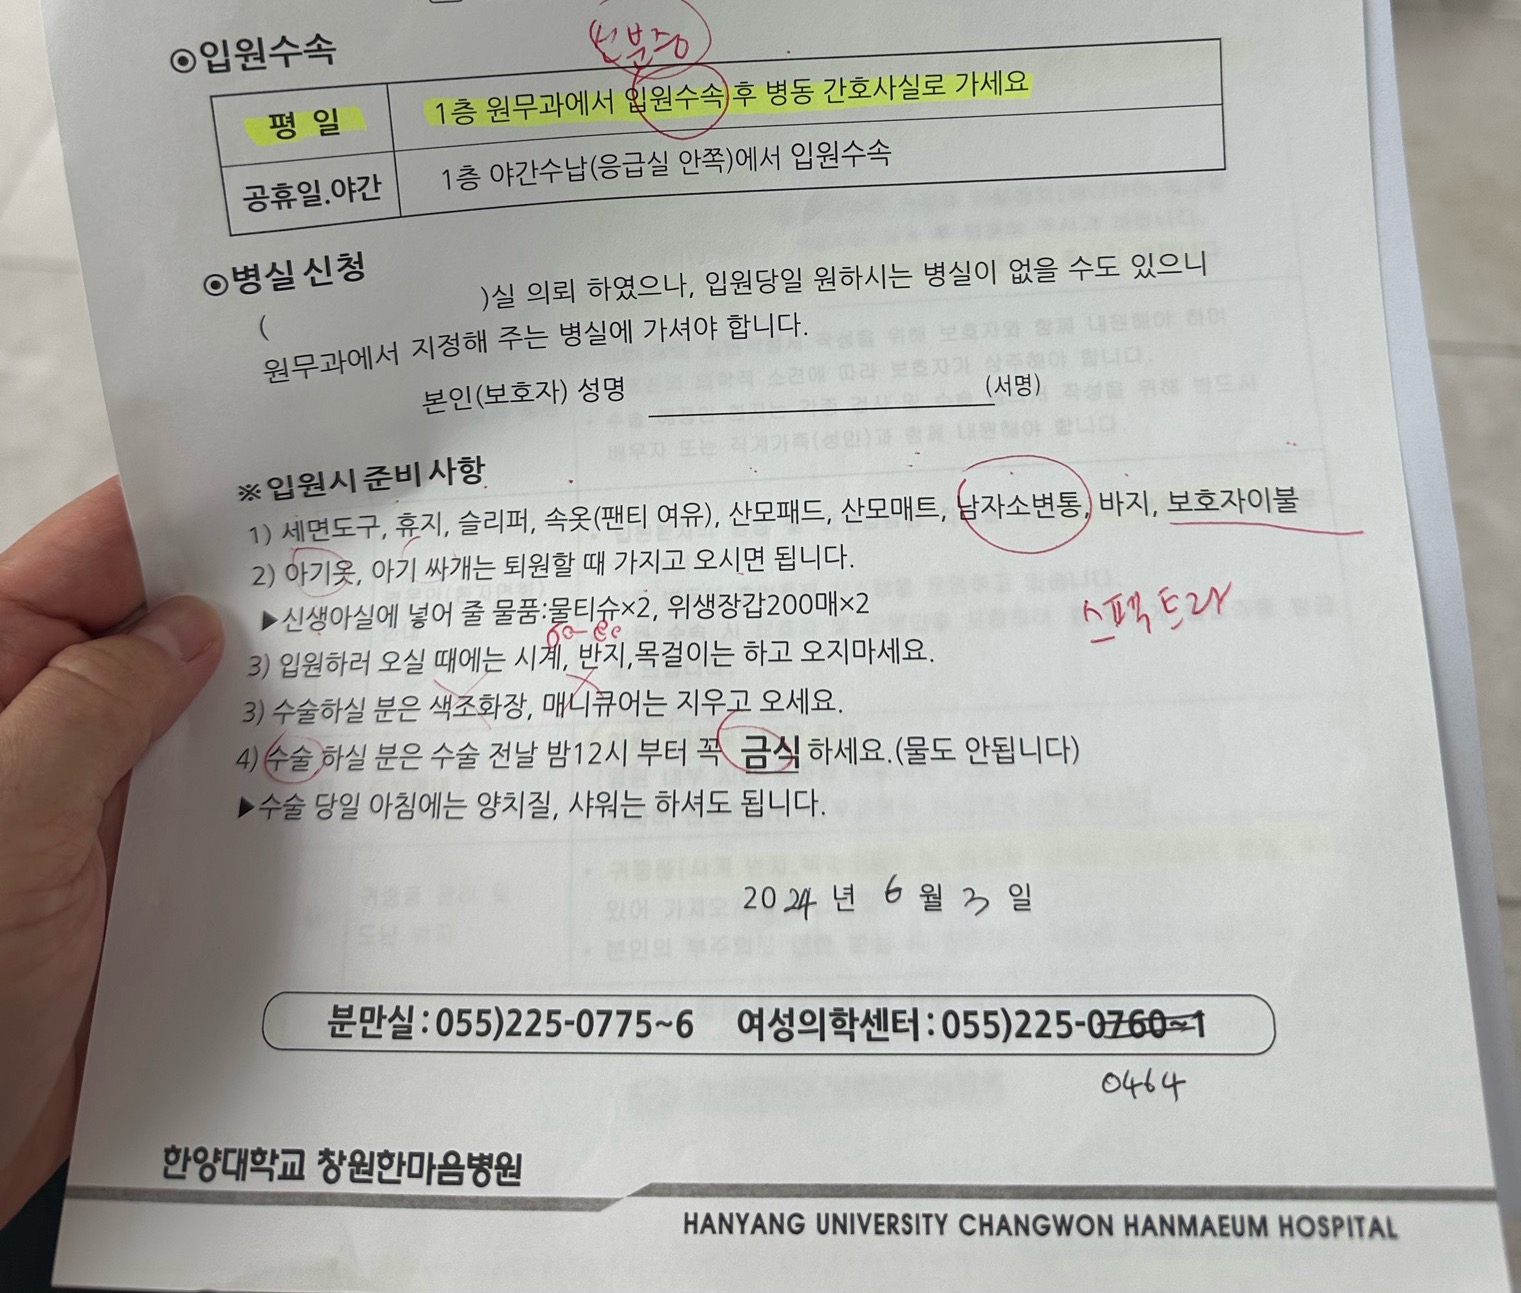 신분증
⊙입원수속
평 일 1층 원무과에서 입원수속 후 병동 간호사실로 가세요
공휴일.야간 1층 야간수납(응급실 안쪽)에서 입원수속
⊙병실 신청
( )실 의뢰 하였으나, 입원당일 원하시는 병실이 없을 수도 있으니
원무과에서 지정해 주는 병실에 가셔야 합니다.
본인(보호자) 성명 (서명)
※입원시 준비 사항
1) 세면도구, 휴지, 슬리퍼, 속옷(팬티 여유), 산모패드, 산모매트, 남자소변통, 바지, 보호자이불
2) 아기옷, 아기 싸개는 퇴원할 때 가지고 오시면 됩니다.
▶신생아실에 넣어 줄 물품:물티슈×2, 위생장갑200매×2
스펙트라
3) 입원하러 오실 때에는 시계, 반지,목걸이는 하고 오지마세요.
3) 수술하실 분은 색조화장, 매니큐어는 지우고 오세요.
4) 수술 하실 분은 수술 전날 밤12시 부터 꼭 금식 하세요.(물도 안됩니다)
▶수술 당일 아침에는 양치질, 샤워는 하셔도 됩니다.
2024 년 6 월 3 일
분만실 : 055)225-0775~6 여성의학센터 : 055)225-0760~1
0464
한양대학교 창원한마음병원
HANYANG UNIVERSITY CHANGWON HANMAEUM HOSPITAL